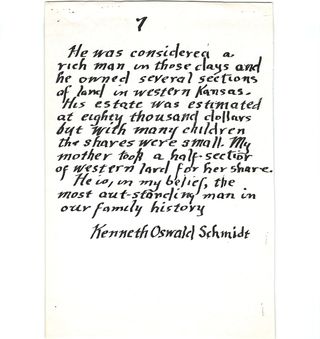 7
He was considered a
rich man in those days and
he owned several sections
of land in western Kansas.
His estate was estimated
at eighty thousand dollars
but with many children
the shares were small. My
mother took a half-section
of western land for her share.
He is, in my belief, the
most out-standing man in
our family history
Kenneth Oswald Schmidt